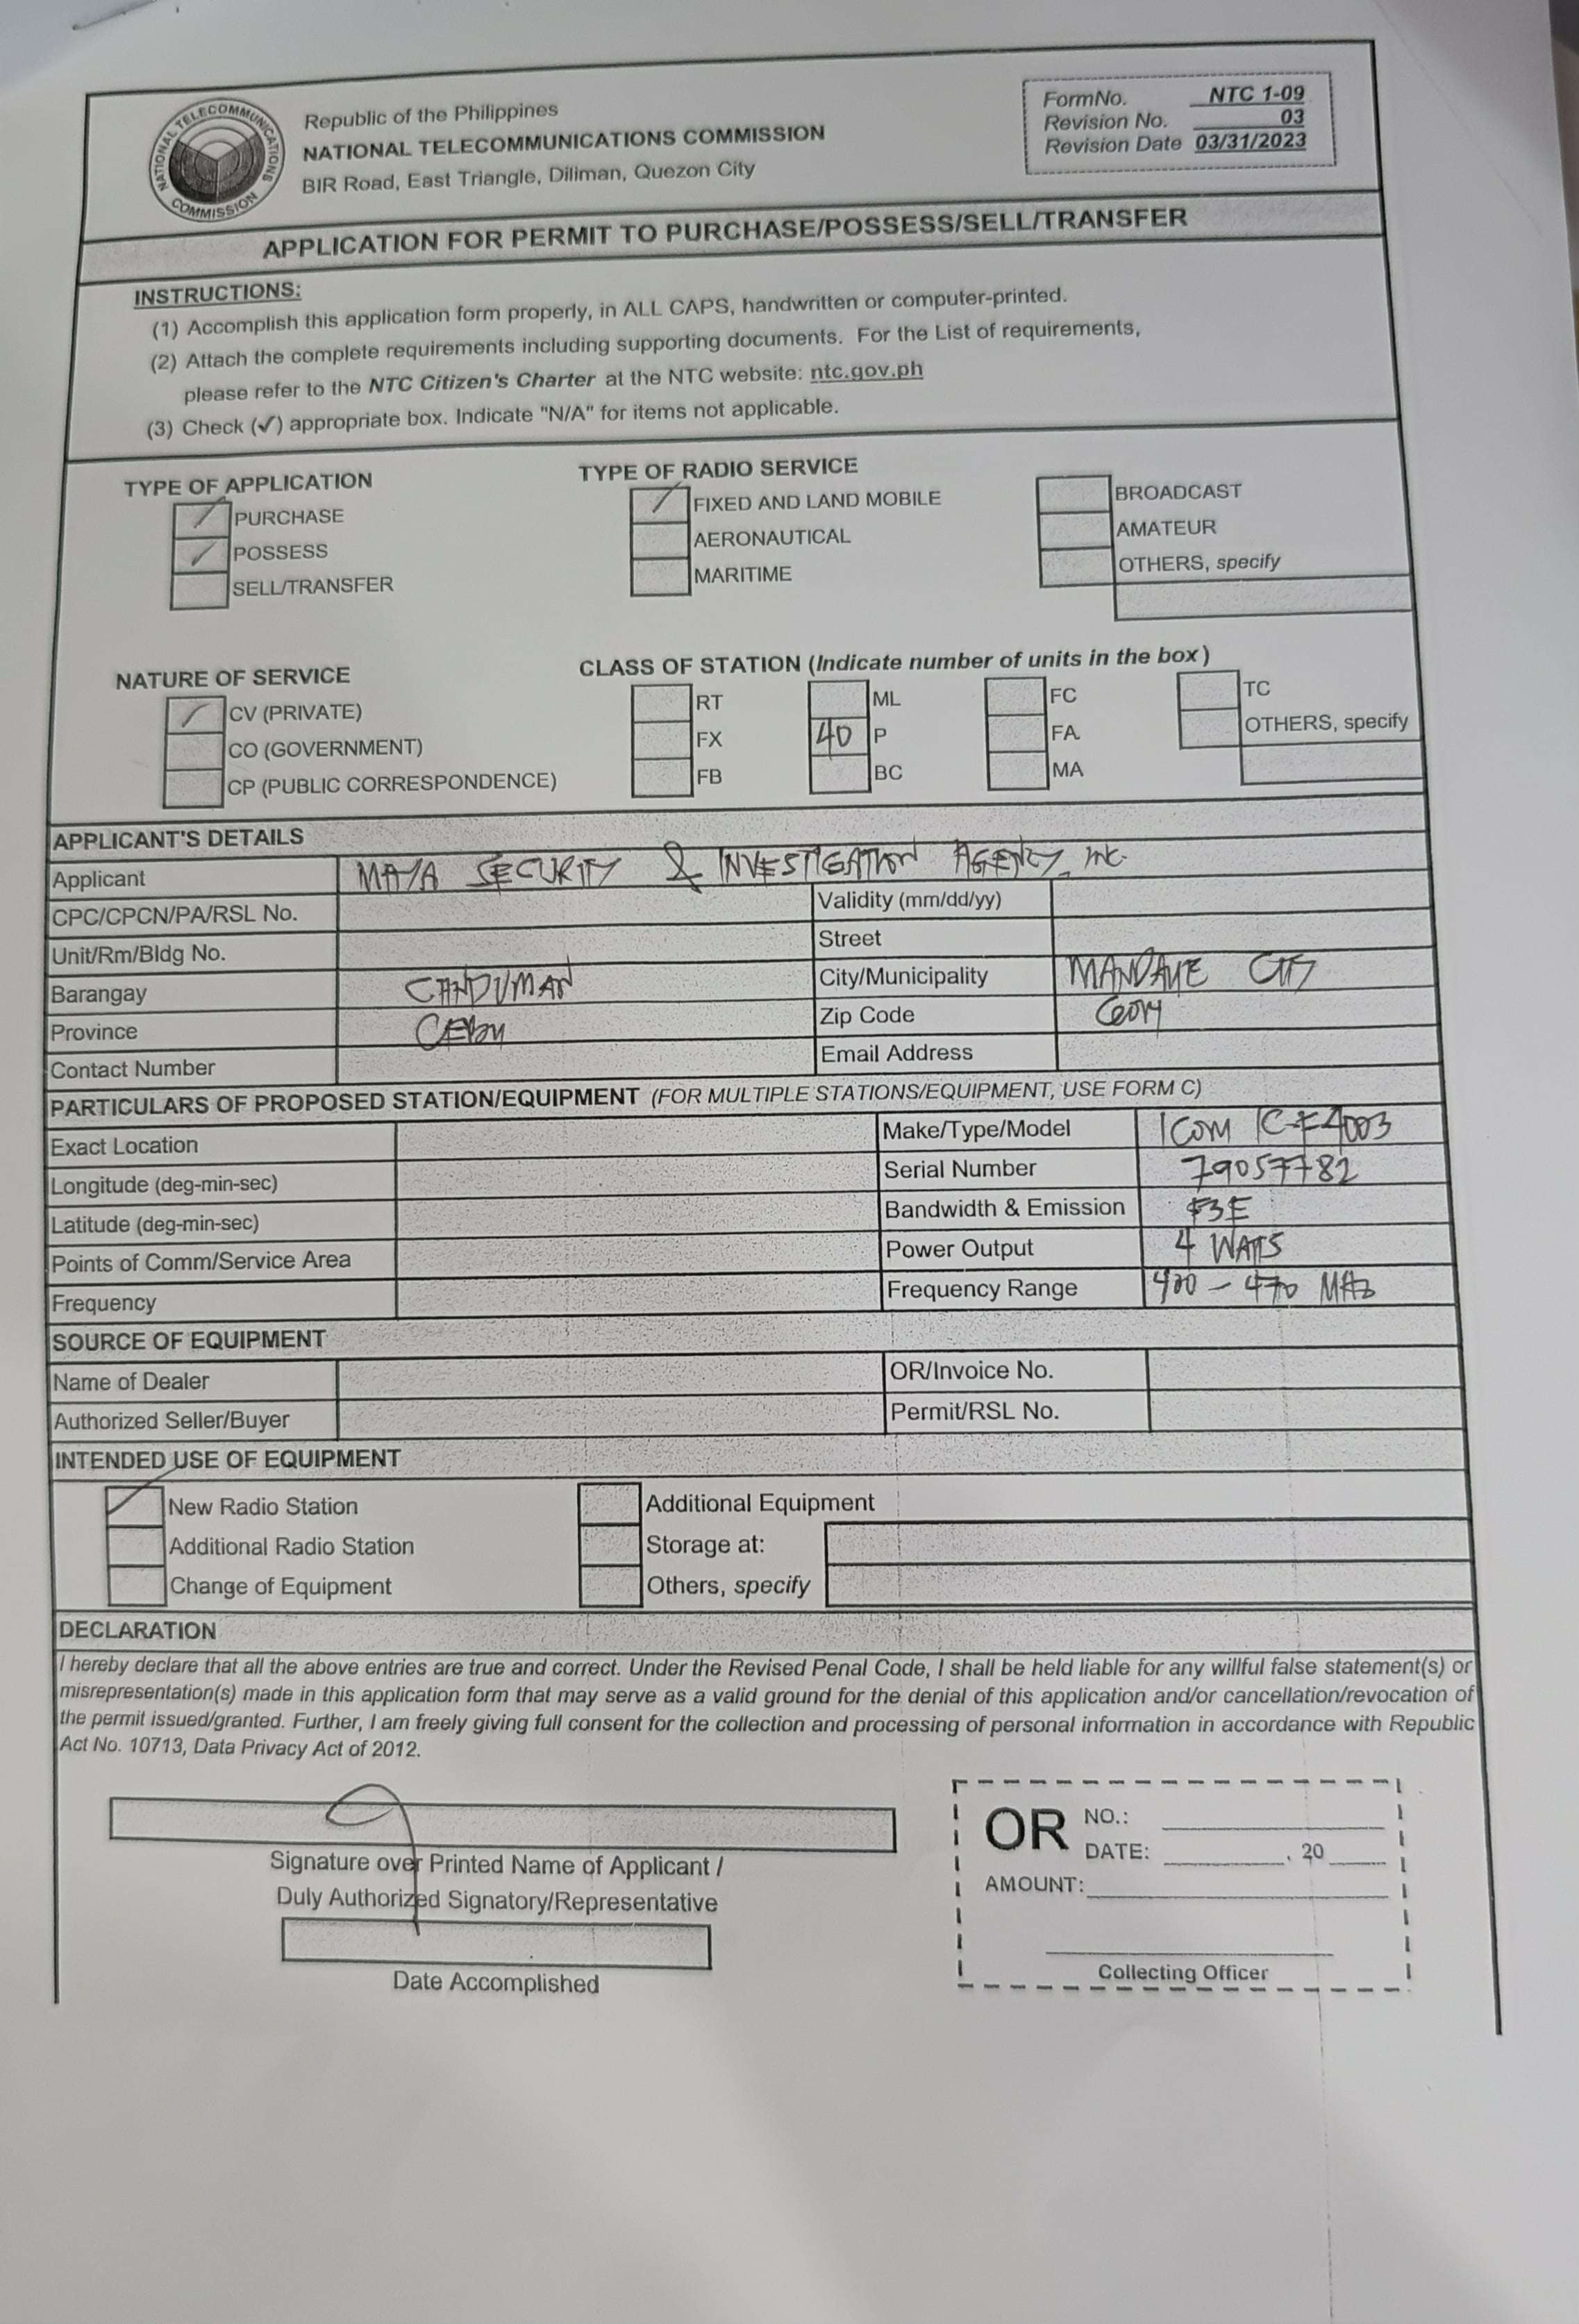 NATIONAL TELECOMMUNICATIONS COMMISSION
Republic of the Philippines
NATIONAL TELECOMMUNICATIONS COMMISSION
BIR Road, East Triangle, Diliman, Quezon City
FormNo. NTC 1-09
Revision No. 03
Revision Date 03/31/2023
APPLICATION FOR PERMIT TO PURCHASE/POSSESS/SELL/TRANSFER
INSTRUCTIONS:
(1) Accomplish this application form properly, in ALL CAPS, handwritten or computer-printed.
(2) Attach the complete requirements including supporting documents. For the List of requirements,
please refer to the NTC Citizen's Charter at the NTC website: ntc.gov.ph
(3) Check (✓) appropriate box. Indicate "N/A" for items not applicable.
TYPE OF APPLICATION
/ PURCHASE
/ POSSESS
SELL/TRANSFER
TYPE OF RADIO SERVICE
/ FIXED AND LAND MOBILE
AERONAUTICAL
MARITIME
BROADCAST
AMATEUR
OTHERS, specify
NATURE OF SERVICE
/ CV (PRIVATE)
CO (GOVERNMENT)
CP (PUBLIC CORRESPONDENCE)
CLASS OF STATION (Indicate number of units in the box)
RT
FX
FB
ML
40 P
BC
FC
FA
MA
TC
OTHERS, specify
APPLICANT'S DETAILS
Applicant MAYA SECURITY & INVESTIGATION AGENCY, INC.
CPC/CPCN/PA/RSL No. Validity (mm/dd/yy)
Unit/Rm/Bldg No. Street
Barangay CANDUMAN City/Municipality MANDAUE CITY
Province CEBU Zip Code
Contact Number Email Address
PARTICULARS OF PROPOSED STATION/EQUIPMENT (FOR MULTIPLE STATIONS/EQUIPMENT, USE FORM C)
Exact Location Make/Type/Model ICOM IC-F4003
Longitude (deg-min-sec) Serial Number 79057782
Latitude (deg-min-sec) Bandwidth & Emission F3E
Points of Comm/Service Area Power Output 4 WATTS
Frequency Frequency Range 400 - 470 MHz
SOURCE OF EQUIPMENT
Name of Dealer OR/Invoice No.
Authorized Seller/Buyer Permit/RSL No.
INTENDED USE OF EQUIPMENT
/ New Radio Station
Additional Radio Station
Change of Equipment
Additional Equipment
Storage at:
Others, specify
DECLARATION
I hereby declare that all the above entries are true and correct. Under the Revised Penal Code, I shall be held liable for any willful false statement(s) or
misrepresentation(s) made in this application form that may serve as a valid ground for the denial of this application and/or cancellation/revocation of
the permit issued/granted. Further, I am freely giving full consent for the collection and processing of personal information in accordance with Republic
Act No. 10713, Data Privacy Act of 2012.
Signature over Printed Name of Applicant /
Duly Authorized Signatory/Representative
Date Accomplished
OR NO.:
DATE: , 20
AMOUNT:
Collecting Officer